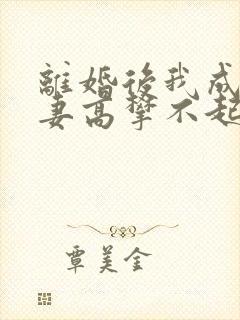 離婚後我成
妻高攀不起
覃美金